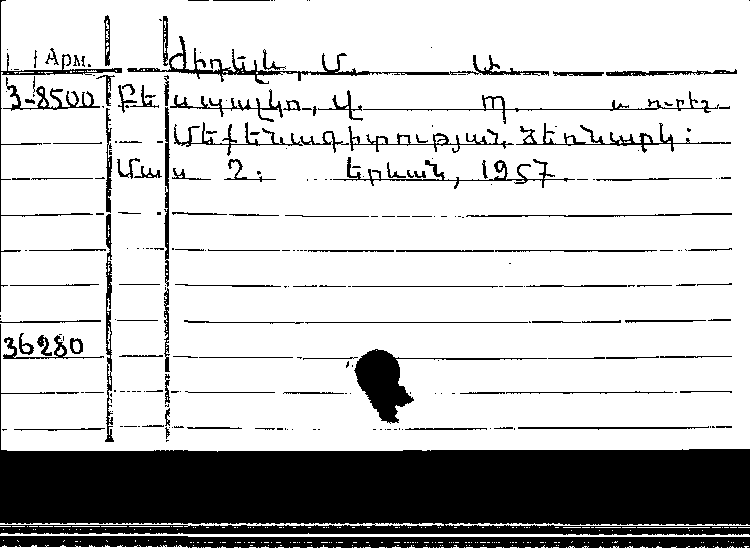 Арм. Ժիդելև, Մ. Ա.
3-8500 Բեսպալկո, Վ. Պ. և ուրիշ.
Մեքենագիտության ձեռնարկ:
Մաս 2: Երևան, 1957.
36280